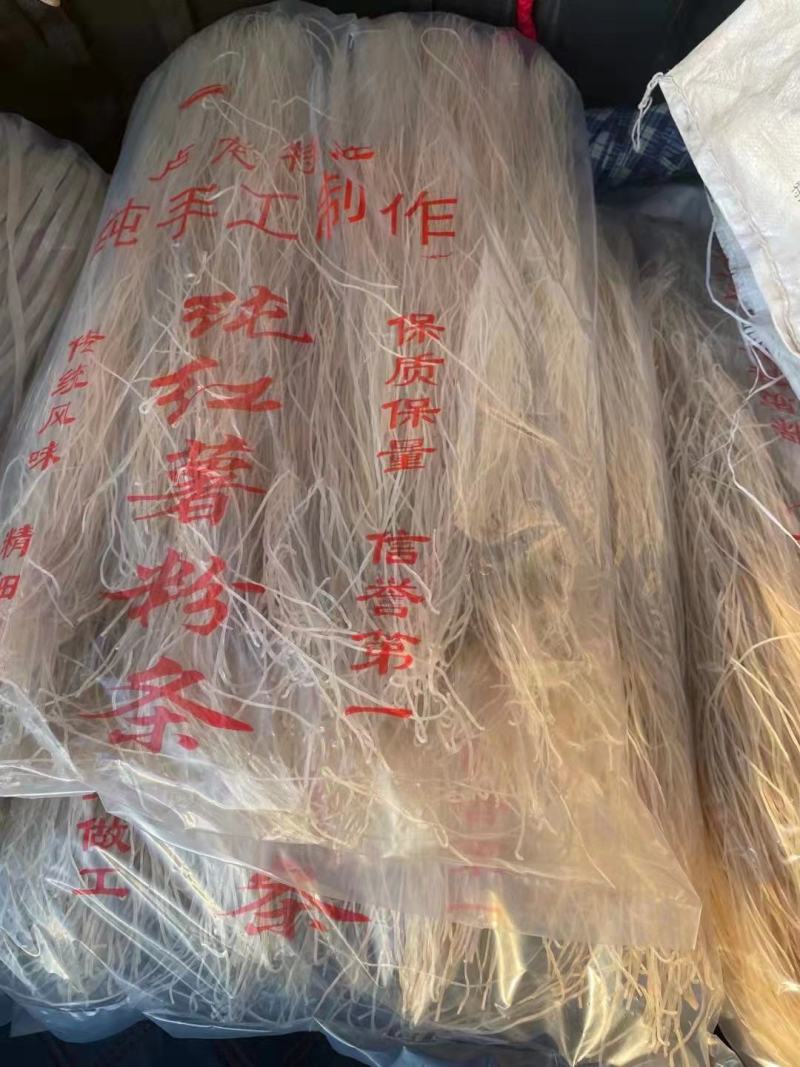 纯手工制作
纯红薯粉条
保质保量
信誉第一
传统风味
精
做工
条